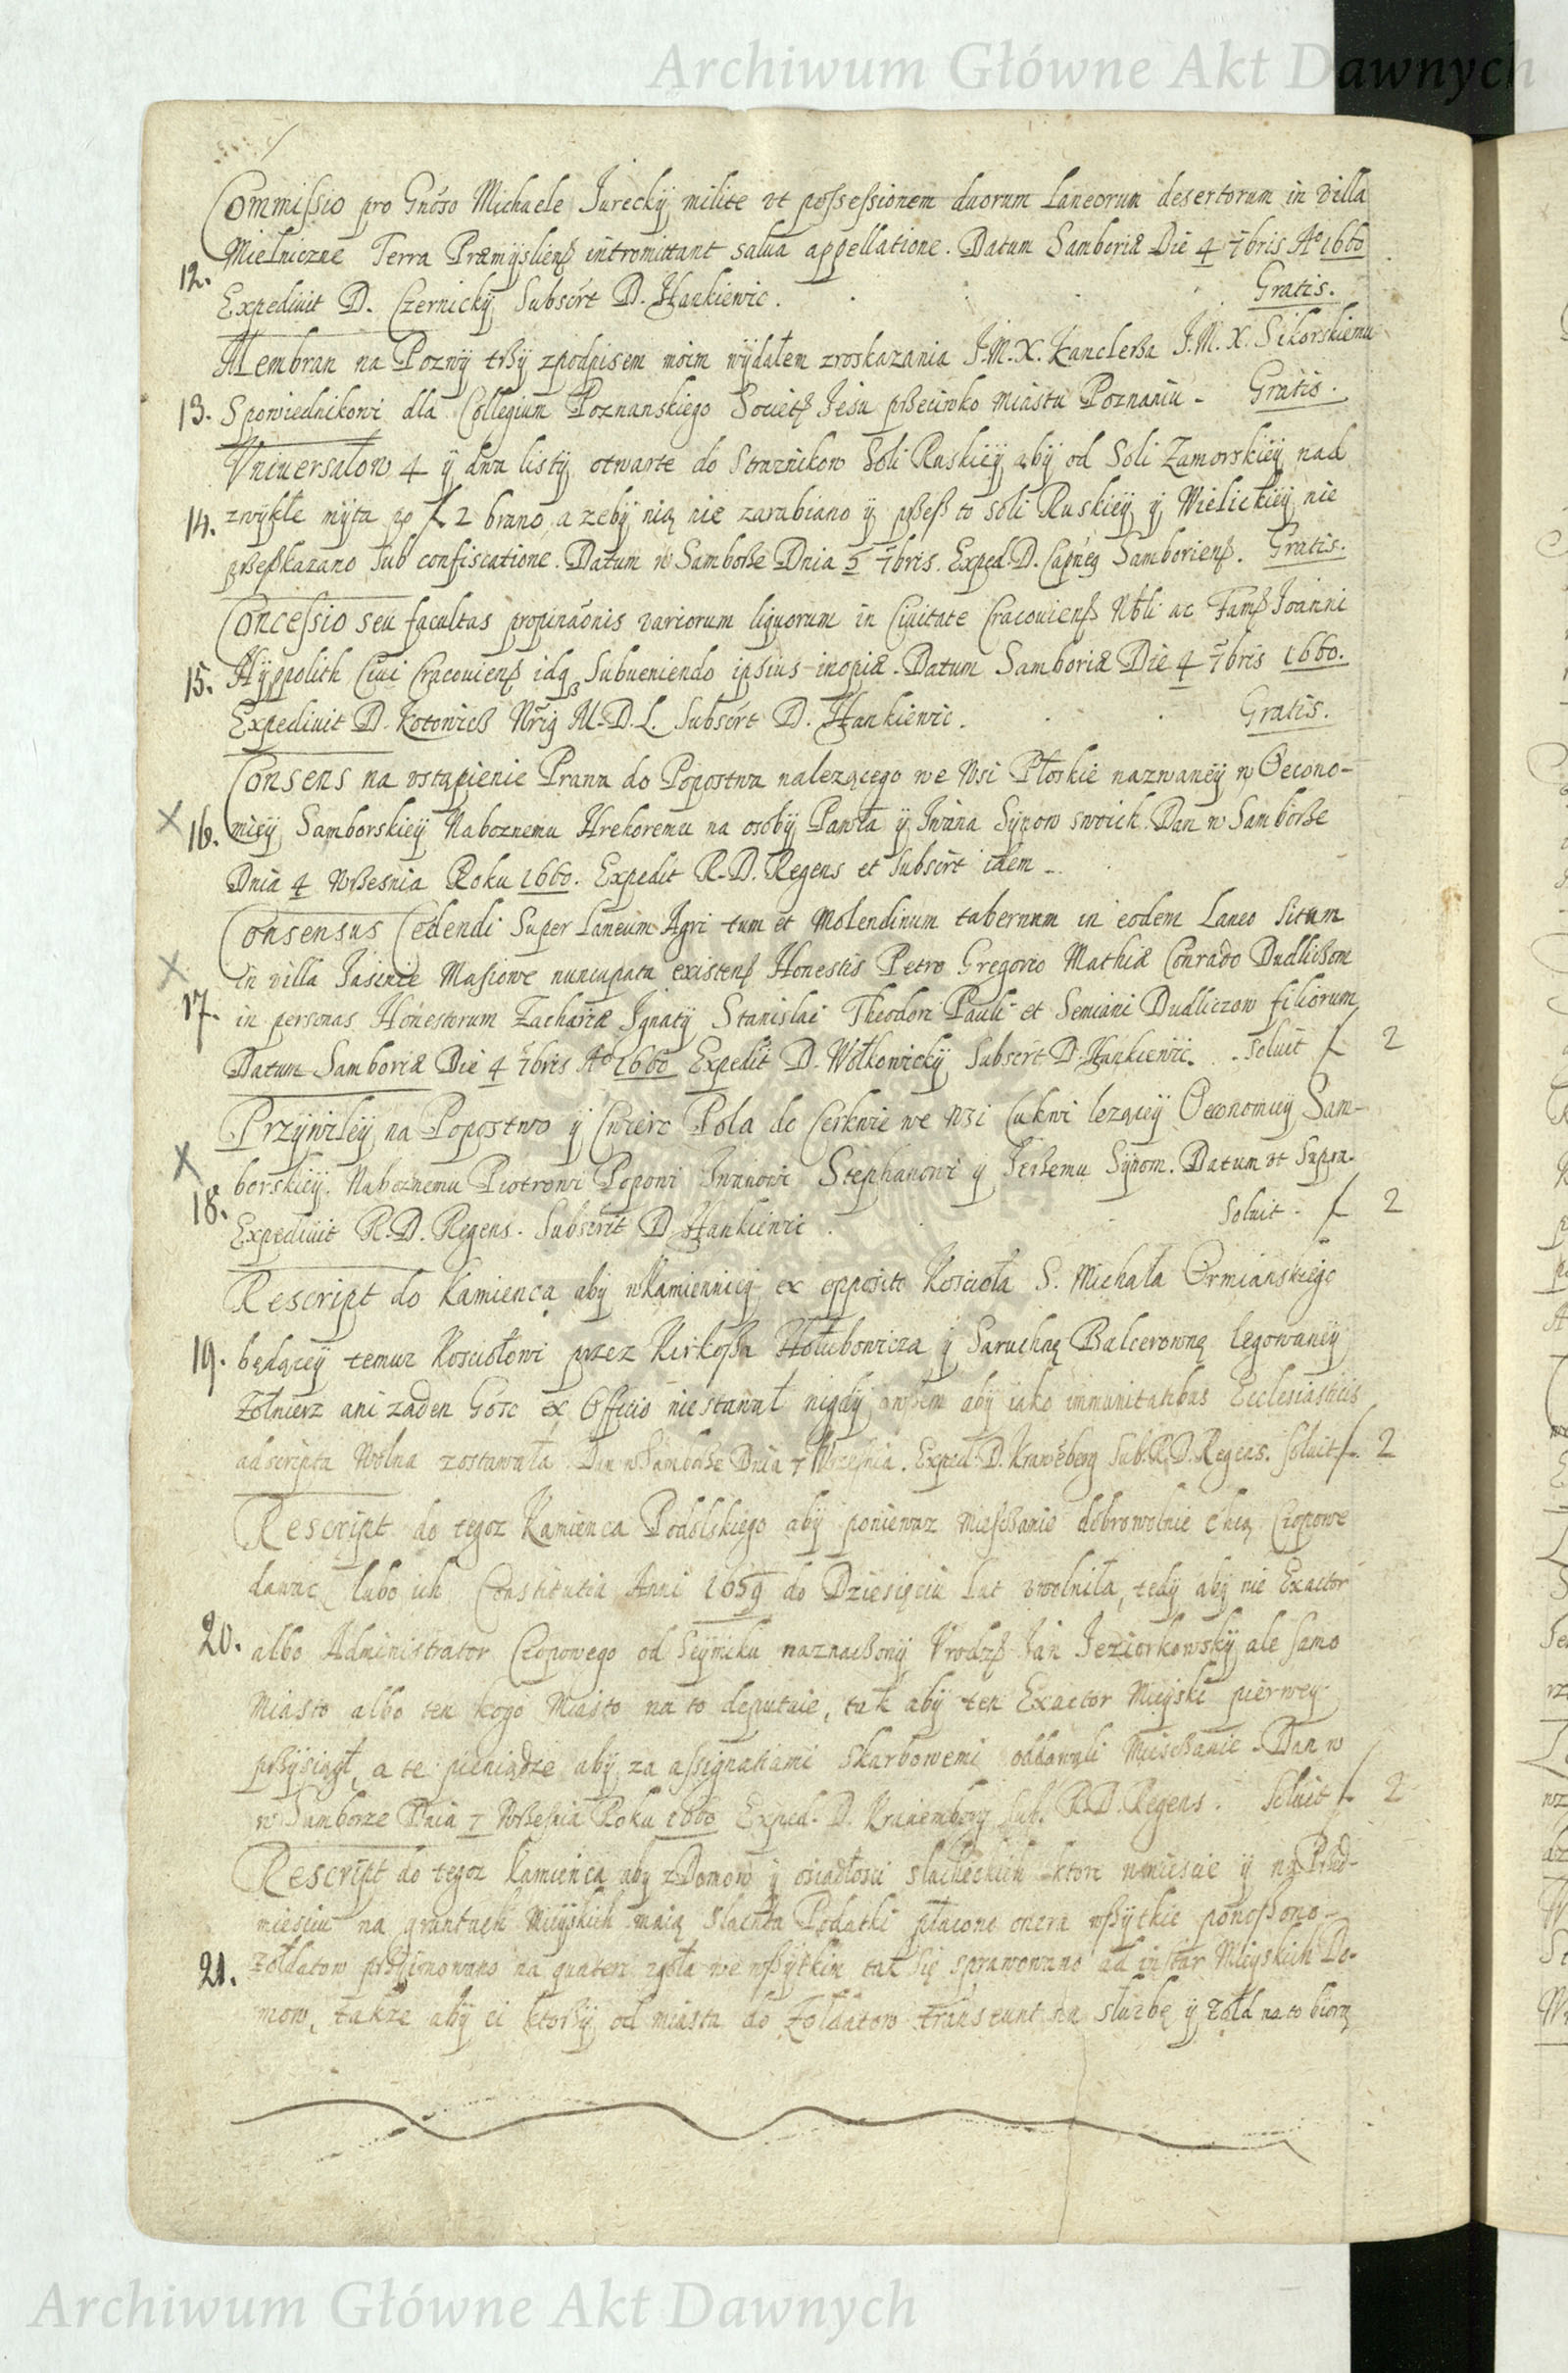 Archiwum Główne Akt Dawnych
Commissio pro Gnoso Michaele Jureckÿ milite vt possessionem duorum Laneorum desertorum in villa
Mielniczne Terra Præmÿsliens intromittant salua appellatione. Datum Samboriæ Die 4 7bris Aº 1660
12.
Expediuit D. Czernickÿ Subscrt D. Hankiewic. Gratis.
Membran na Pozwÿ trzÿ zpodpisem moim wÿdałem zroskazania J.M.X. Kanclerza J.M.X. Sikorskiemu
13. Spowiednikowi dla Collegium Poznanskiego Societ Jesu przeciwko Miastu Poznaniu - Gratis.
Vniuersałow 4 ÿ dwa listÿ otwarte do Straznikow Soli Ruskieÿ abÿ od Soli Zamorskieÿ nad
14. zwÿkłe mÿta po f 2 brano, a zebÿ nią nie zarabiano ÿ przesz to soli Ruskieÿ ÿ Wielickieÿ nie
przeszkazano sub confiscatione. Datum w Samborze Dnia 5 7bris. Exped. D. Samboriens. Gratis.
Concessio seu facultas propinaonis variorum liquorum in Ciuitate Cracouiens Nbli ac Fam Joanni
15. Hÿppolith Ciui Cracouiens idq Subueniendo ipsius inopiæ. Datum Samboriæ Die 4 7bris 1660.
Expediuit D. Kotowicz M.D.L. Subscrt D. Hankiewic. Gratis.
Consens na vstąpienie Prawa do Popostwa nalezącego we Wsi Płoskie nazwaneÿ w Oecono-
16. mieÿ Samborskieÿ Naboznemu Hrehoremu na osobÿ Pawła ÿ Jwana Sÿnow swoich. Dan w Samborze
Dnia 4 Wrzesnia Roku 1660. Expedit R.D. Regens et subscrt idem -
Consensus Cedendi Super Laneum Agri tum et Molendinum tabernam in eodem Laneo situm
in villa Jasinie Masiowe nuncupata existen Honestis Petro Gregorio Mathiæ Conrado Dudliczom
17. in personas Honestorum Zachariæ Jgnatÿ Stanislai Theodori Pauli et Semiani Dudliczow filiorum
Datum Samboriæ Die 4 7bris Aº 1660 Expedit D. Wołkowickÿ Subscrt D. Hankiewic. Soluit f 2
Przÿwileÿ na Popostwo ÿ Cwierc Pola do Cerkwie we Wsi Cukwi lezącÿ Oeconomieÿ Sam-
borskieÿ. Naboznemu Piotrowi Popowi Jwanowi Stephanowi ÿ Sÿnom. Datum vt Supra.
18.
Expediuit R.D. Regens. Subscrit D. Hankiewic. Soluit - f 2
Rescript do Kamienca abÿ wkamiennicÿ ex opposito Koscioła S. Michała Ormianskiego
19. będąceÿ temuz Kosciołowi przez Kirkosza Hołubowicza ÿ Saruchnę Balcerowną legowaneÿ
Zołnierz ani zaden Gosc ex Officio niestawał nigdÿ owszem abÿ iako immunitatibus Ecclesiasticis
adscripta Wolna zostawała. Dan wSamborze Dnia 7 Wrzesnia. Exped. D. Sub. R.D. Regens. Soluit f. 2
Rescript do tegoz Kamienca Podolskiego abÿ poniewaz Mieszczanie dobrowolnie chcą Czopowe
dawac lubo ich Constitutia Anni 1659 do Dziesięciu Lat vwolniła, tedÿ abÿ nie Exactor
20. albo Administrator Czopowego od Seÿmiku naznaczonÿ Vrodz Jan Jeziorkowskÿ, ale samo
Miasto albo ten kogo Miasto na to deputuie, tak abÿ ten Exactor Mieÿski pierweÿ
przÿsiągł, a te pieniądze abÿ za assignatiami Skarbowemi oddawali Mieszczanie. Dan w
w Samborze Dnia 7 Wrzesnia Roku 1660 Exped. D. Sub. R.D. Regens. Soluit f 2
Rescript do tegoz Kamienca abÿ z Domow ÿ osiadłosci slacheckich ktore wmiescie ÿ na Przed-
miesciu na gruntach Mieÿskich maią Slachta Podatki płacone onera wszÿtkie ponoszono -
21. Zołdatow przÿimowano na quateri zgoła we wszÿtkim tak się sprawowano ad instar Mieÿskich Do-
mow, takze abÿ ci ktorzÿ od miasta do Zołdatow transeunt na słuzbę ÿ zołd na to biorą
Archiwum Główne Akt Dawnych